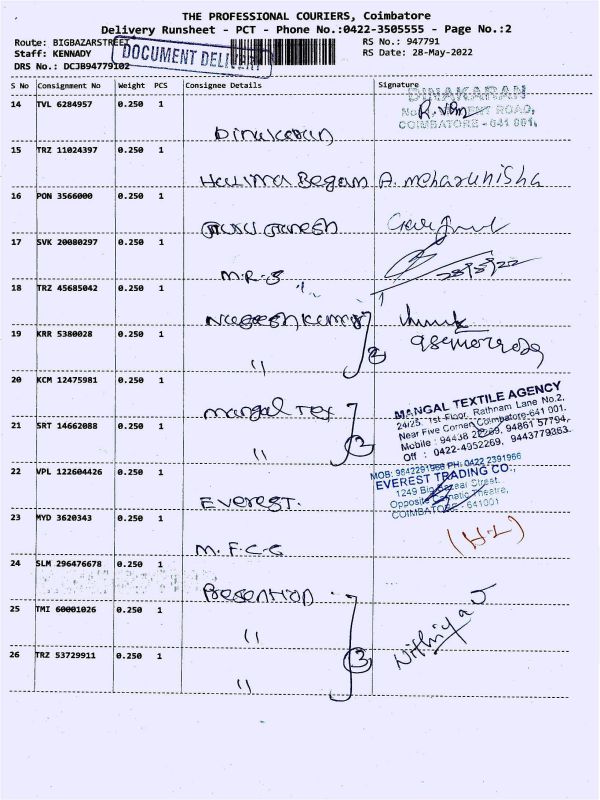 THE PROFESSIONAL COURIERS, Coimbatore
Delivery Runsheet - PCT - Phone No.:0422-3505555 - Page No.:2
Route: BIGBAZARSTREET
RS No.: 947791
Staff: KENNADY
RS Date: 28-May-2022
DOCUMENT DELI
DRS No.: DCJB94779102
S No Consignment No Weight PCS Consignee Details Signature
14 TVL 6284957 0.250 1
DINAKARAN
ROAD,
COIMBATORE - 641 001.
Dinakaran
15 TRZ 11024397 0.250 1
Halima Began A. meharunisha
16 PON 3566000 0.250 1
17 SVK 20080297 0.250 1
M.R.S
28/5/22
18 TRZ 45685042 0.250 1
Nageshkumar
19 KRR 5380028 0.250 1
" 2
20 KCM 12475981 0.250 1
mangal Tex
MANGAL TEXTILE AGENCY
24/25, 1st Floor, Rathnam Lane No.2,
Near Five Corner, Coimbatore-641 001.
Mobile : 94438 22269, 94861 57794,
Off : 0422-4952269, 9443779363.
21 SRT 14662088 0.250 1
" 2
22 VPL 122604426 0.250 1
Everest.
MOB: 9842291966 PH: 0422 2391966
EVEREST TRADING CO.,
1249 Big Bazaar Street,
Opposite Theatre,
COIMBATORE - 641001
23 MYD 3620343 0.250 1
M.F.C.C
24 SLM 296476678 0.250 1
25 TMI 60001026 0.250 1
"
Nithiya J
26 TRZ 53729911 0.250 1
" 3